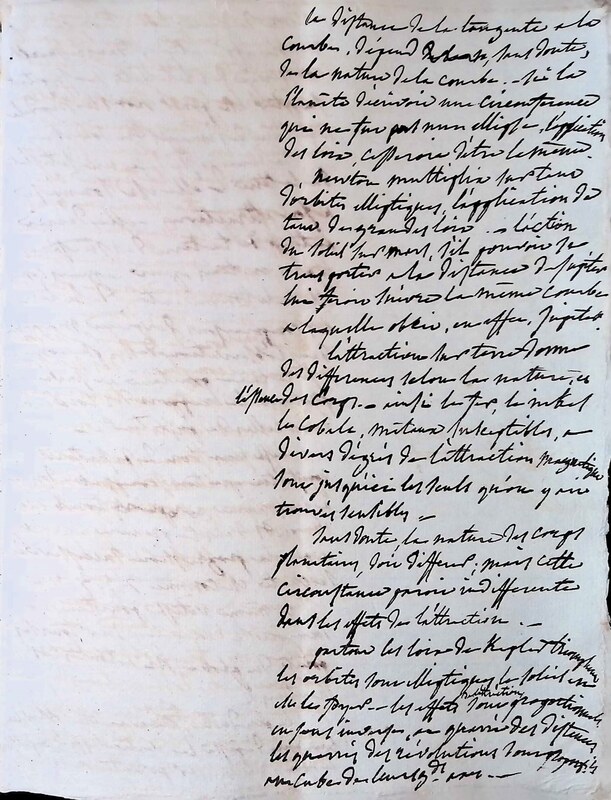 la distance de la tangente a la
courbe, dépend, sans doute,
de la nature de la courbe. - si la
Planète décrivoit une circonférence
qui ne fut pas une ellipse, l'application
des loix, cesseroit d'être la même.
newton multiplia sur tant
d'orbites elliptiques, l'application de
tant de grandes loix. - l'action
du soleil sur mars, s'il pouvoit se
transporter a la distance de jupiter
lui feroit suivre la même courbe
a laquelle obéit, en effet, jupiter.
l'attraction sur terre donne
des différences selon la nature, et
l'essence des corps. - ainsi le fer, le nikel
le Cobalt, métaux susceptibles, a
divers dégrés de l'attraction magnétique
sont jusqu'ici les seuls qu'on y ait
trouvés sensibles. -
sans doute la nature des corps
planétaires, doit différer, mais cette
circonstance paroit indifférente
dans les effets de l'attraction. -
partout les loix de Kepler triomphent
les orbites sont elliptiques, le soleil en
est les foyers - les effets de l'attraction sont proportionnels
en sens inverse, au quarré des distances
les quarrés des révolutions sont proportionels
aux cubes de leurs gds. axes. -